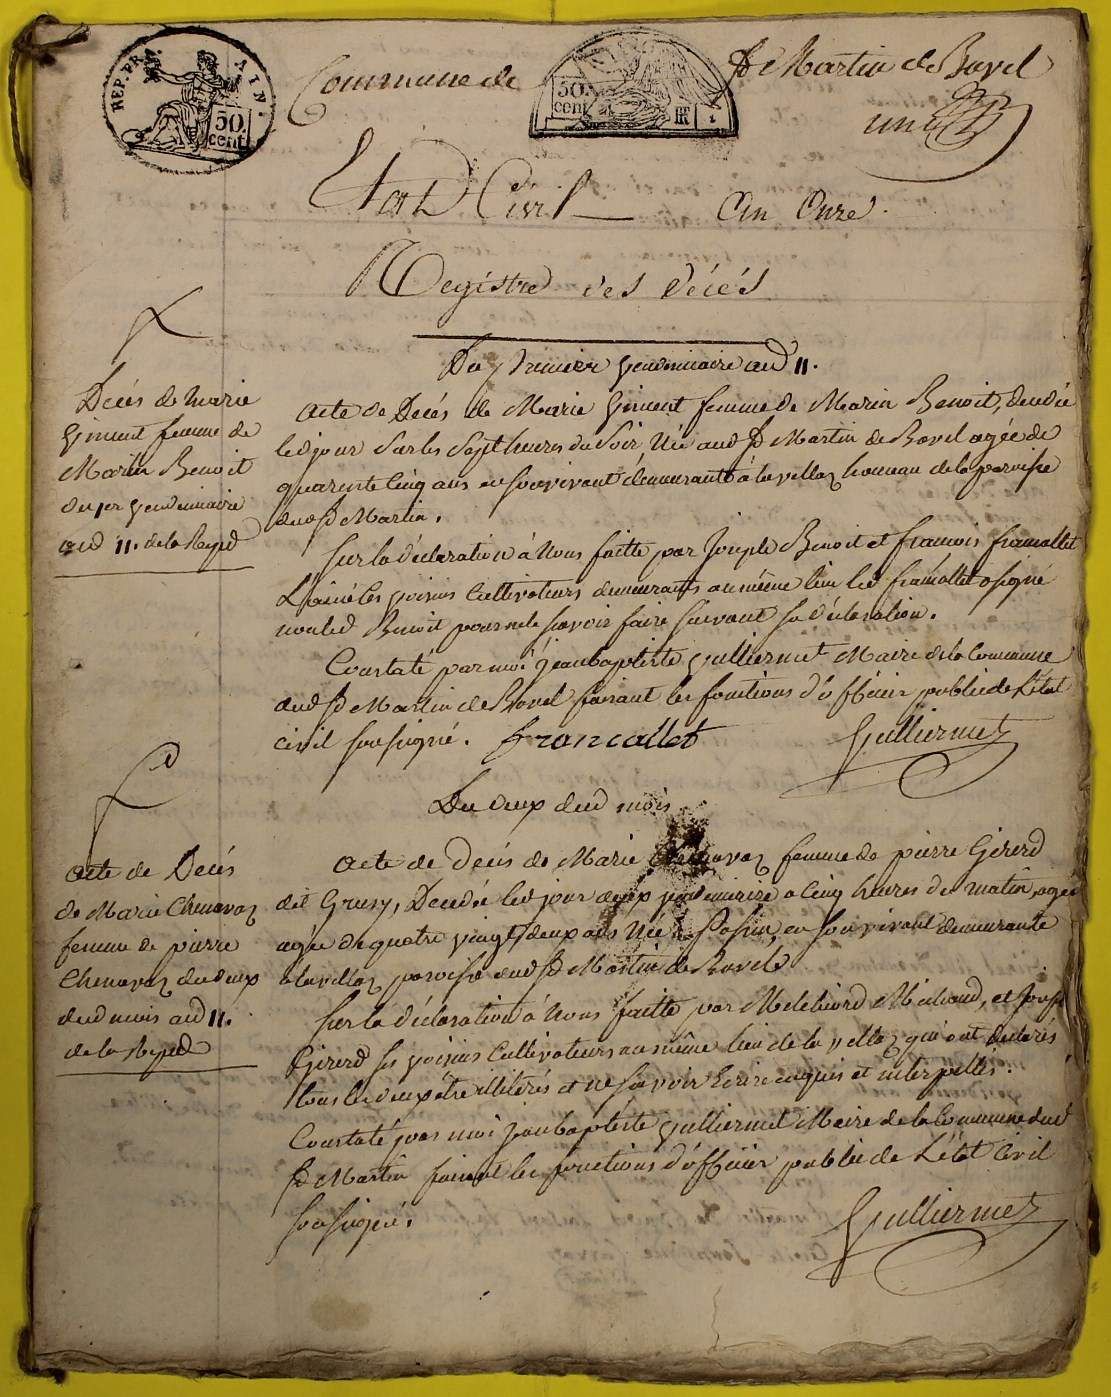 REP. FRA. AIN
50. cent
Commune de St Martin de Bavel
50. cent
un
Etat Civil An Onze.
Registre des Décés
Du premier vendemiaire and 11.
Décés de marie
Gineut femme de
Marin Benoit
du 1er vendemiaire
and 11. de la Repud
acte de Decés de Marie Gineut femme de Marin Benoit, decedée
led jour sur les sept heures du soir, Née aud St Martin de Bavel agée de
quarente cinq ans en son vivant demeurante à la villaz hameau de la paroisse
dud St Martin.
Sur la déclaration à Nous faitte par Joseph Benoit et francois francallet
L'ainé les voisins Cultivateurs demeurants au même lieu led francallet a signé
non led Benoit pour ne le savoir faire suivant sa déclaration.
Constaté par moi jean baptiste Gulliermet Maire de la Commune
dud St Martin de Bavel faisant les fonctions d'officier public de l'état
civil soussigné. francallet Gulliermet
Du deux dud mois
acte de Decés
de Marie Chenavaz
femme de pierre
Chenavaz du deux
dud mois and 11.
de la Repud
acte de decés de Marie Chenavaz femme de pierre Girerd
dit Grusy, Decedée led jour deux vendemiaire a cinq heures du matin, agée
agée de quatre vingt deux ans Née à en son vivant demeurante
a la villaz paroisse dud St Martin de Bavel
Sur la déclaration à Nous faitte par Melchiord Michaud, et Joseph
Girerd ses voisins Cultivateurs au même lieu de la villaz qui ont declarés
tous les deux être illiterés et ne savoir Ecrire enquis et interpellés.
Constaté par moi jean baptiste Gulliermet Maire de la Commune dud
St Martin faisant les fonctions d'officier public de L'état Civil
soussigné. Gulliermet